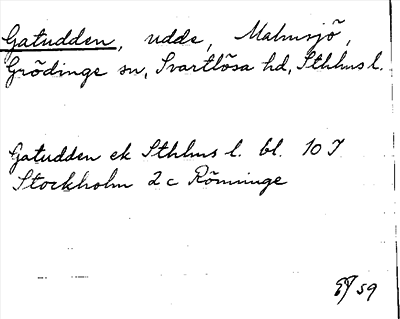 Gatudden, udde, Malmsjö,
Grödinge sn, Svartlösa hd, Sthlms l.
Gatudden ek Sthlms l. bl. 10 I
Stockholm 2 c Rönninge
59